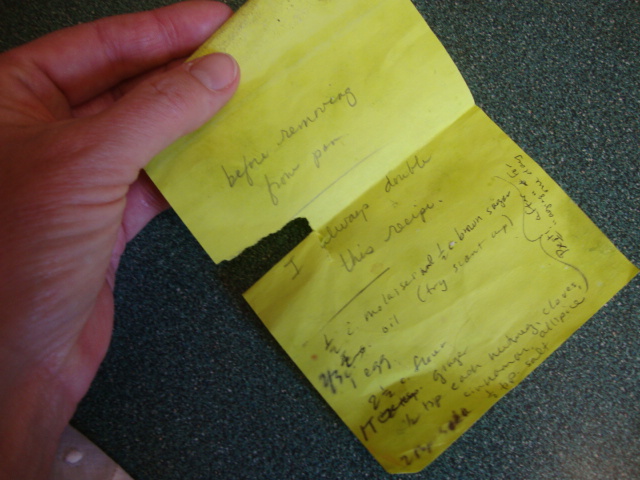 before removing
from pan.
I always double
this recipe.
½ c. molasses and ½ c brown sugar
(try scant cup)
2/3 c. oil
1 egg.
2½ c flour
1T ginger
½ tsp each nutmeg, cloves,
cinnamon, allspice,
½ tsp salt
2 tsp soda